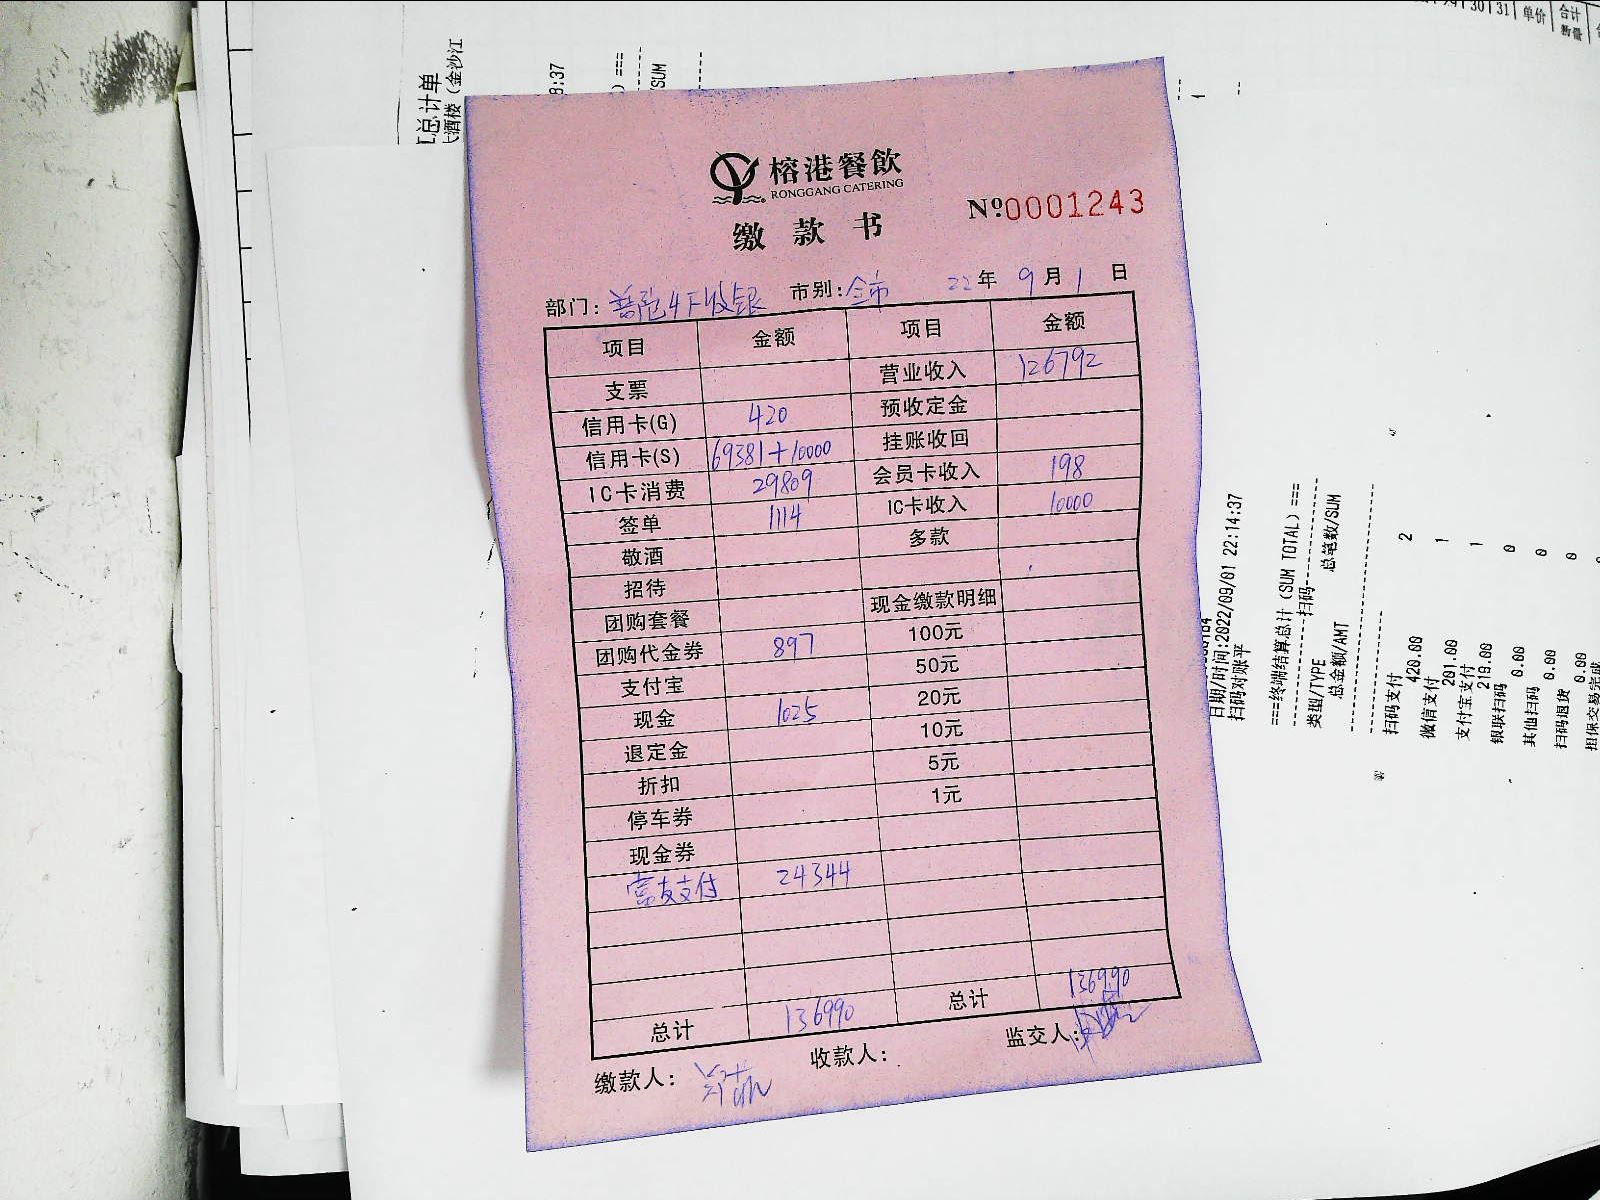 [总计单
酒楼（金沙江
8:37
) ===
/SUM
30 31 单价 合计
数量
榕港餐飲
RONGGANG CATERING
缴款书
Nº0001243
部门：普陀4F收银 市别：全市 22年9月1日
项目 金额 项目 金额
支票 营业收入 126792
信用卡(G) 420 预收定金
信用卡(S) 69381+10000 挂账收回
IC卡消费 29809 会员卡收入 198
签单 1114 IC卡收入 10000
敬酒 多款
招待
团购套餐 现金缴款明细
团购代金券 897 100元
支付宝 50元
现金 1025 20元
退定金 10元
折扣 5元
停车券 1元
现金券
支付 24344
总计 136990 总计 136990
缴款人： 收款人： 监交人：
日期/时间:2022/09/01 22:14:37
扫码对账平
===终端结算总计 (SUM TOTAL) ===
扫码
类型/TYPE 总笔数/SUM
总金额/AMT
扫码支付 2
420.00
微信支付 1
201.00
支付宝支付 1
219.00
银联扫码 0
0.00
其他扫码 0
0.00
扫码退货 0
0.00
担保交易完成